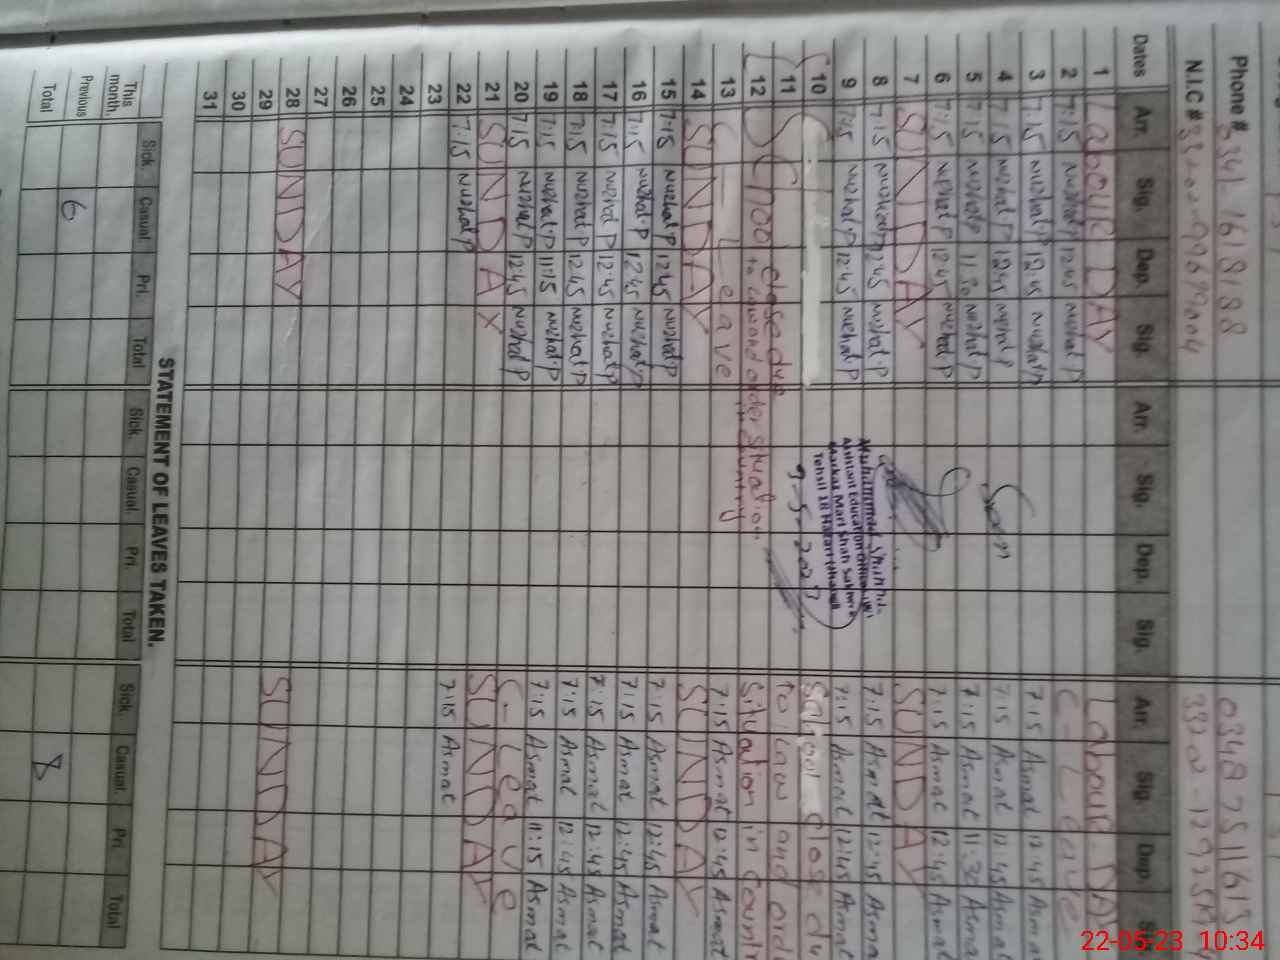 Phone # 0341 1618188 0348 7511613
N.I.C #
Dates Arr. Sig. Dep. Sig. Arr. Sig. Dep. Sig. Arr. Sig. Dep.
1 Labour DAY Labour DAY
2 7:15 Nuzhat P 12:45 Nuzhat P C-Leave
3 7:15 Nuzhat P 12:45 Nuzhat P 7:15 Asmat 12:45 Asmat
4 7:15 Nuzhat P 12:45 Nuzhat P 7:15 Asmat 12:45 Asmat
5 7:15 Nuzhat P 11:30 Nuzhat P 7:15 Asmat 11:30 Asmat
6 7:15 Nuzhat P 12:45 Nuzhat P 7:15 Asmat 12:45 Asmat
7 SUNDAY SUNDAY
8 7:15 Nuzhat P 12:45 Nuzhat P 7:15 Asmat 12:45 Asma
9 7:15 Nuzhat P 12:45 Nuzhat P 7:15 Asmat 12:45 Asmat
Muhammad
Assistant Education Officer
Markaz Mari Shah Sakhira
Tehsil 18 Hazari (Jhang)
9-5-2023
10 School Close du
11 School close due to law and ord
12 to law and order situation situation in countr
in country
13 C-Leave 7:15 Asmat 12:45 Asmat
14 SUNDAY SUNDAY
15 7:15 Nuzhat P 12:45 Nuzhat P 7:15 Asmat 12:45 Asmat
16 7:15 Nuzhat P 12:45 Nuzhat P 7:15 Asmat 12:45 Asmat
17 7:15 Nuzhat P 12:45 Nuzhat P 7:15 Asmat 12:45 Asmat
18 7:15 Nuzhat P 12:45 Nuzhat P 7:15 Asmat 12:45 Asmat
19 7:15 Nuzhat P 11:15 Nuzhat P 7:15 Asmat 11:15 Asmat
20 7:15 Nuzhat P 12:45 Nuzhat P C-Leave
21 SUNDAY SUNDAY
22 7:15 Nuzhat P 7:15 Asmat
23
24
25
26
27
28 SUNDAY SUNDAY
29
30
31
STATEMENT OF LEAVES TAKEN.
This month. Sick. Casual. Pri. Total Sick. Casual. Pri. Total Sick. Casual. Pri. Total
Previous 6
Total 8
22-05-23 10:34